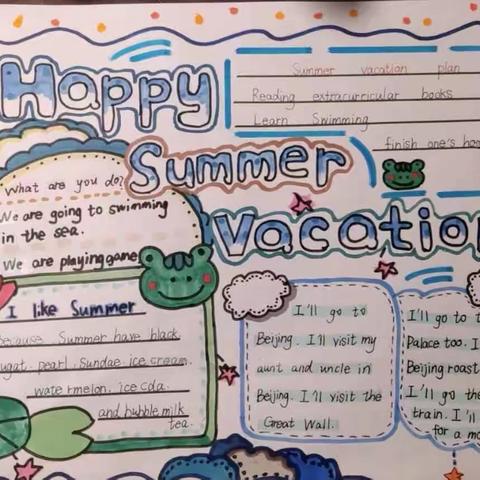 Happy
Summer
Vacation
Summer vacation plan
Reading extracurricular books
Learn Swimming
finish one's ho
What are you do?
We are going to swimming
in the sea.
We are playing game
I like Summer
because Summer have black
ugat. pearl. Sundae. ice cream.
watermelon. ice cola.
and bubble milk
tea.
I'll go to
Beijing. I'll visit my
aunt and uncle in
Beijing. I'll visit the
Great Wall.
I'll go to t
Palace too. I
Beijing roast
I'll go the
train. I'll
for a mo